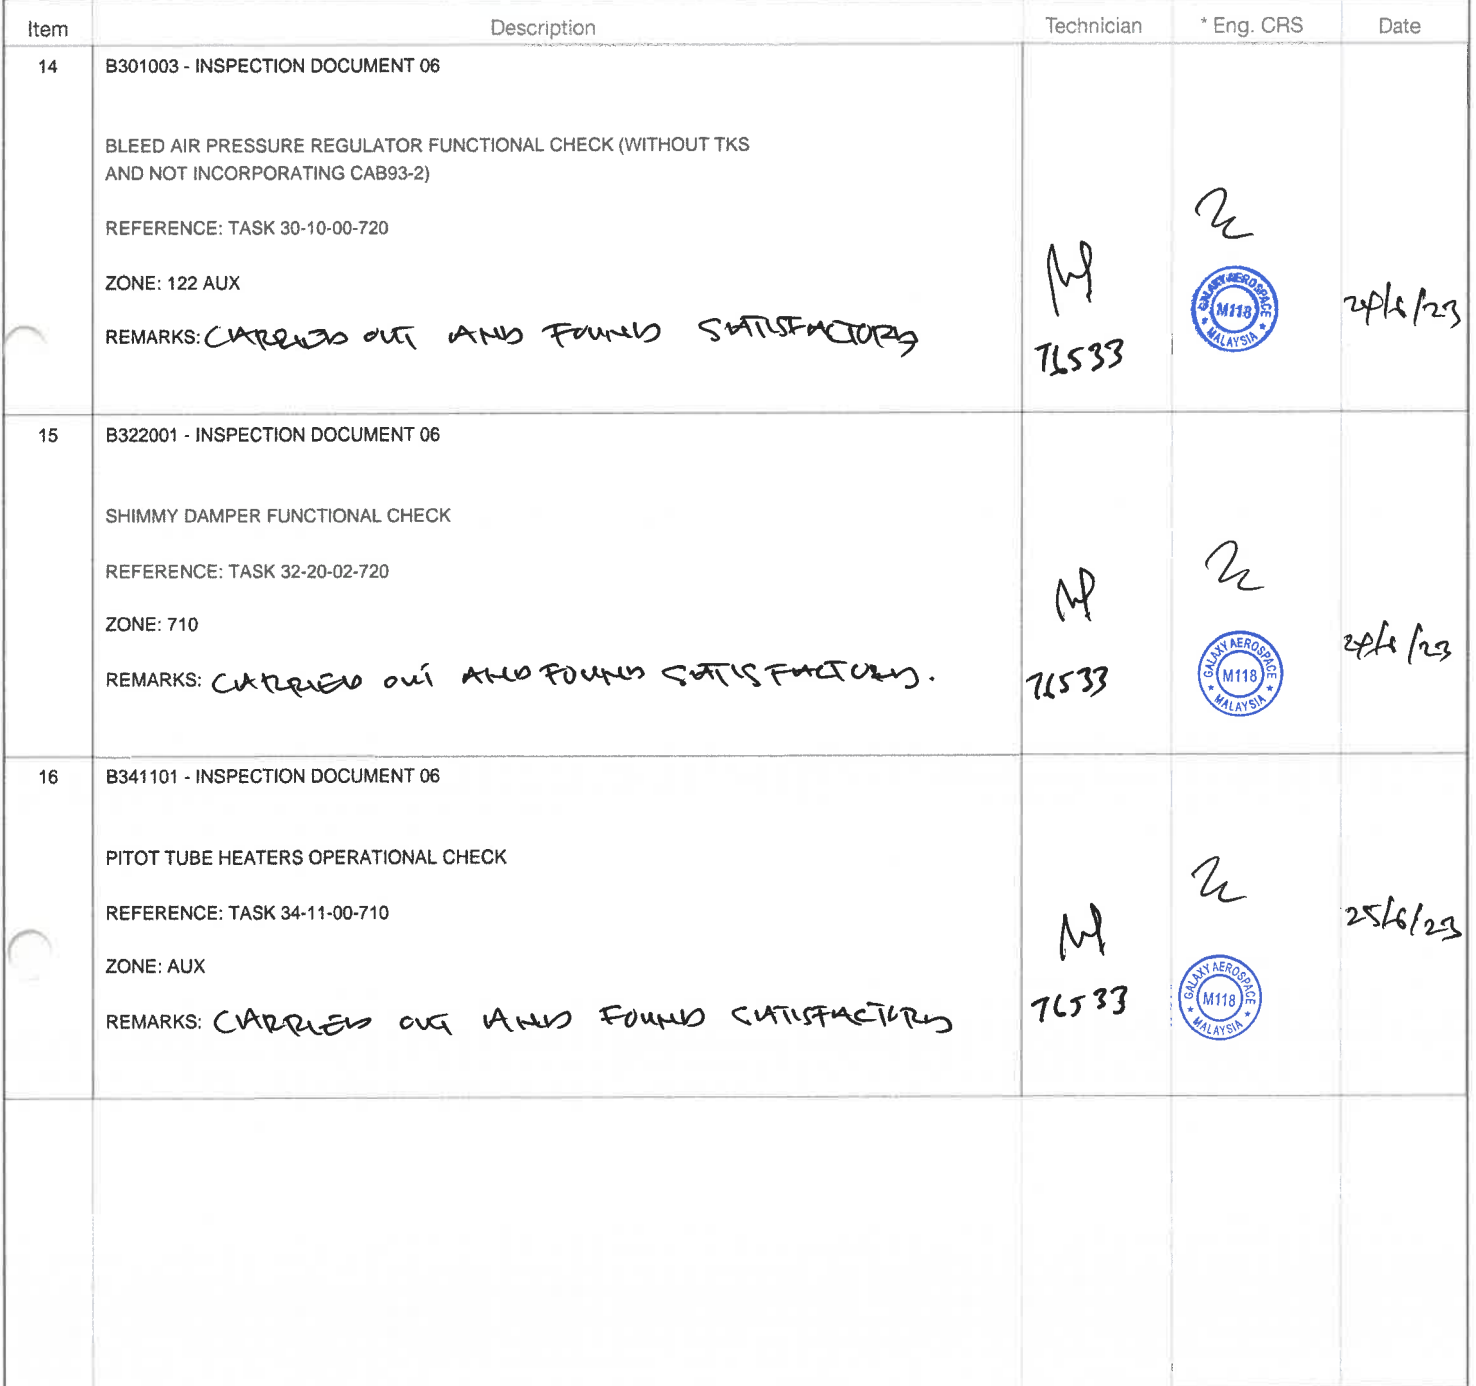 Item Description Technician * Eng. CRS Date
14 B301003 - INSPECTION DOCUMENT 06
BLEED AIR PRESSURE REGULATOR FUNCTIONAL CHECK (WITHOUT TKS
AND NOT INCORPORATING CAB93-2)
REFERENCE: TASK 30-10-00-720
ZONE: 122 AUX
REMARKS: CARRIED OUT AND FOUND SATISFACTORY
GALAXY AEROSPACE
M118
* MALAYSIA *
15 B322001 - INSPECTION DOCUMENT 06
SHIMMY DAMPER FUNCTIONAL CHECK
REFERENCE: TASK 32-20-02-720
ZONE: 710
REMARKS: CARRIED OUT AND FOUND SATISFACTORY.
GALAXY AEROSPACE
M118
* MALAYSIA *
16 B341101 - INSPECTION DOCUMENT 06
PITOT TUBE HEATERS OPERATIONAL CHECK
REFERENCE: TASK 34-11-00-710
25/6/23
ZONE: AUX
REMARKS: CARRIED OUT AND FOUND SATISFACTORY
GALAXY AEROSPACE
M118
* MALAYSIA *